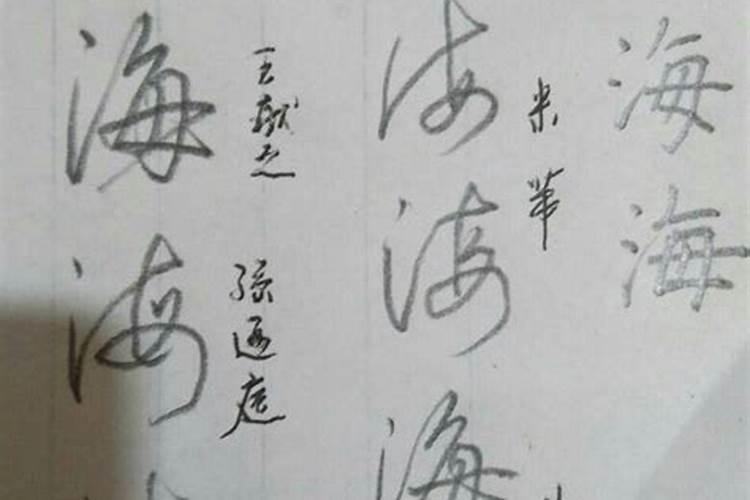 海
海
海
海
海
米芾
海
海
王献之
孙过庭